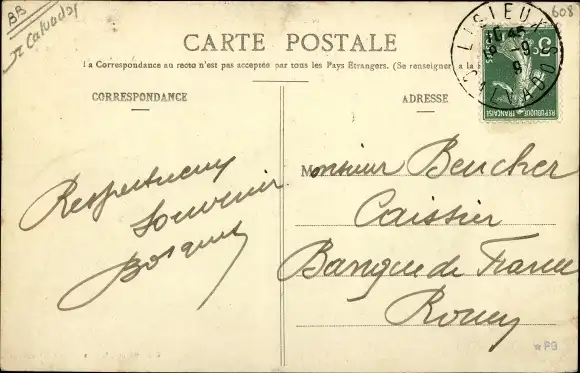 BB
Calvados
608
CARTE POSTALE
La Correspondance au recto n'est pas acceptée par tous les Pays Étrangers. (Se renseigner à la
CORRESPONDANCE
ADRESSE
LISIEUX
CALVADOS
REPUBLIQUE FRANÇAISE
POSTES
Respectueux
Souvenir
Bosquet
Monsieur Beucher
Caissier
Banque de France
Rouen
PG